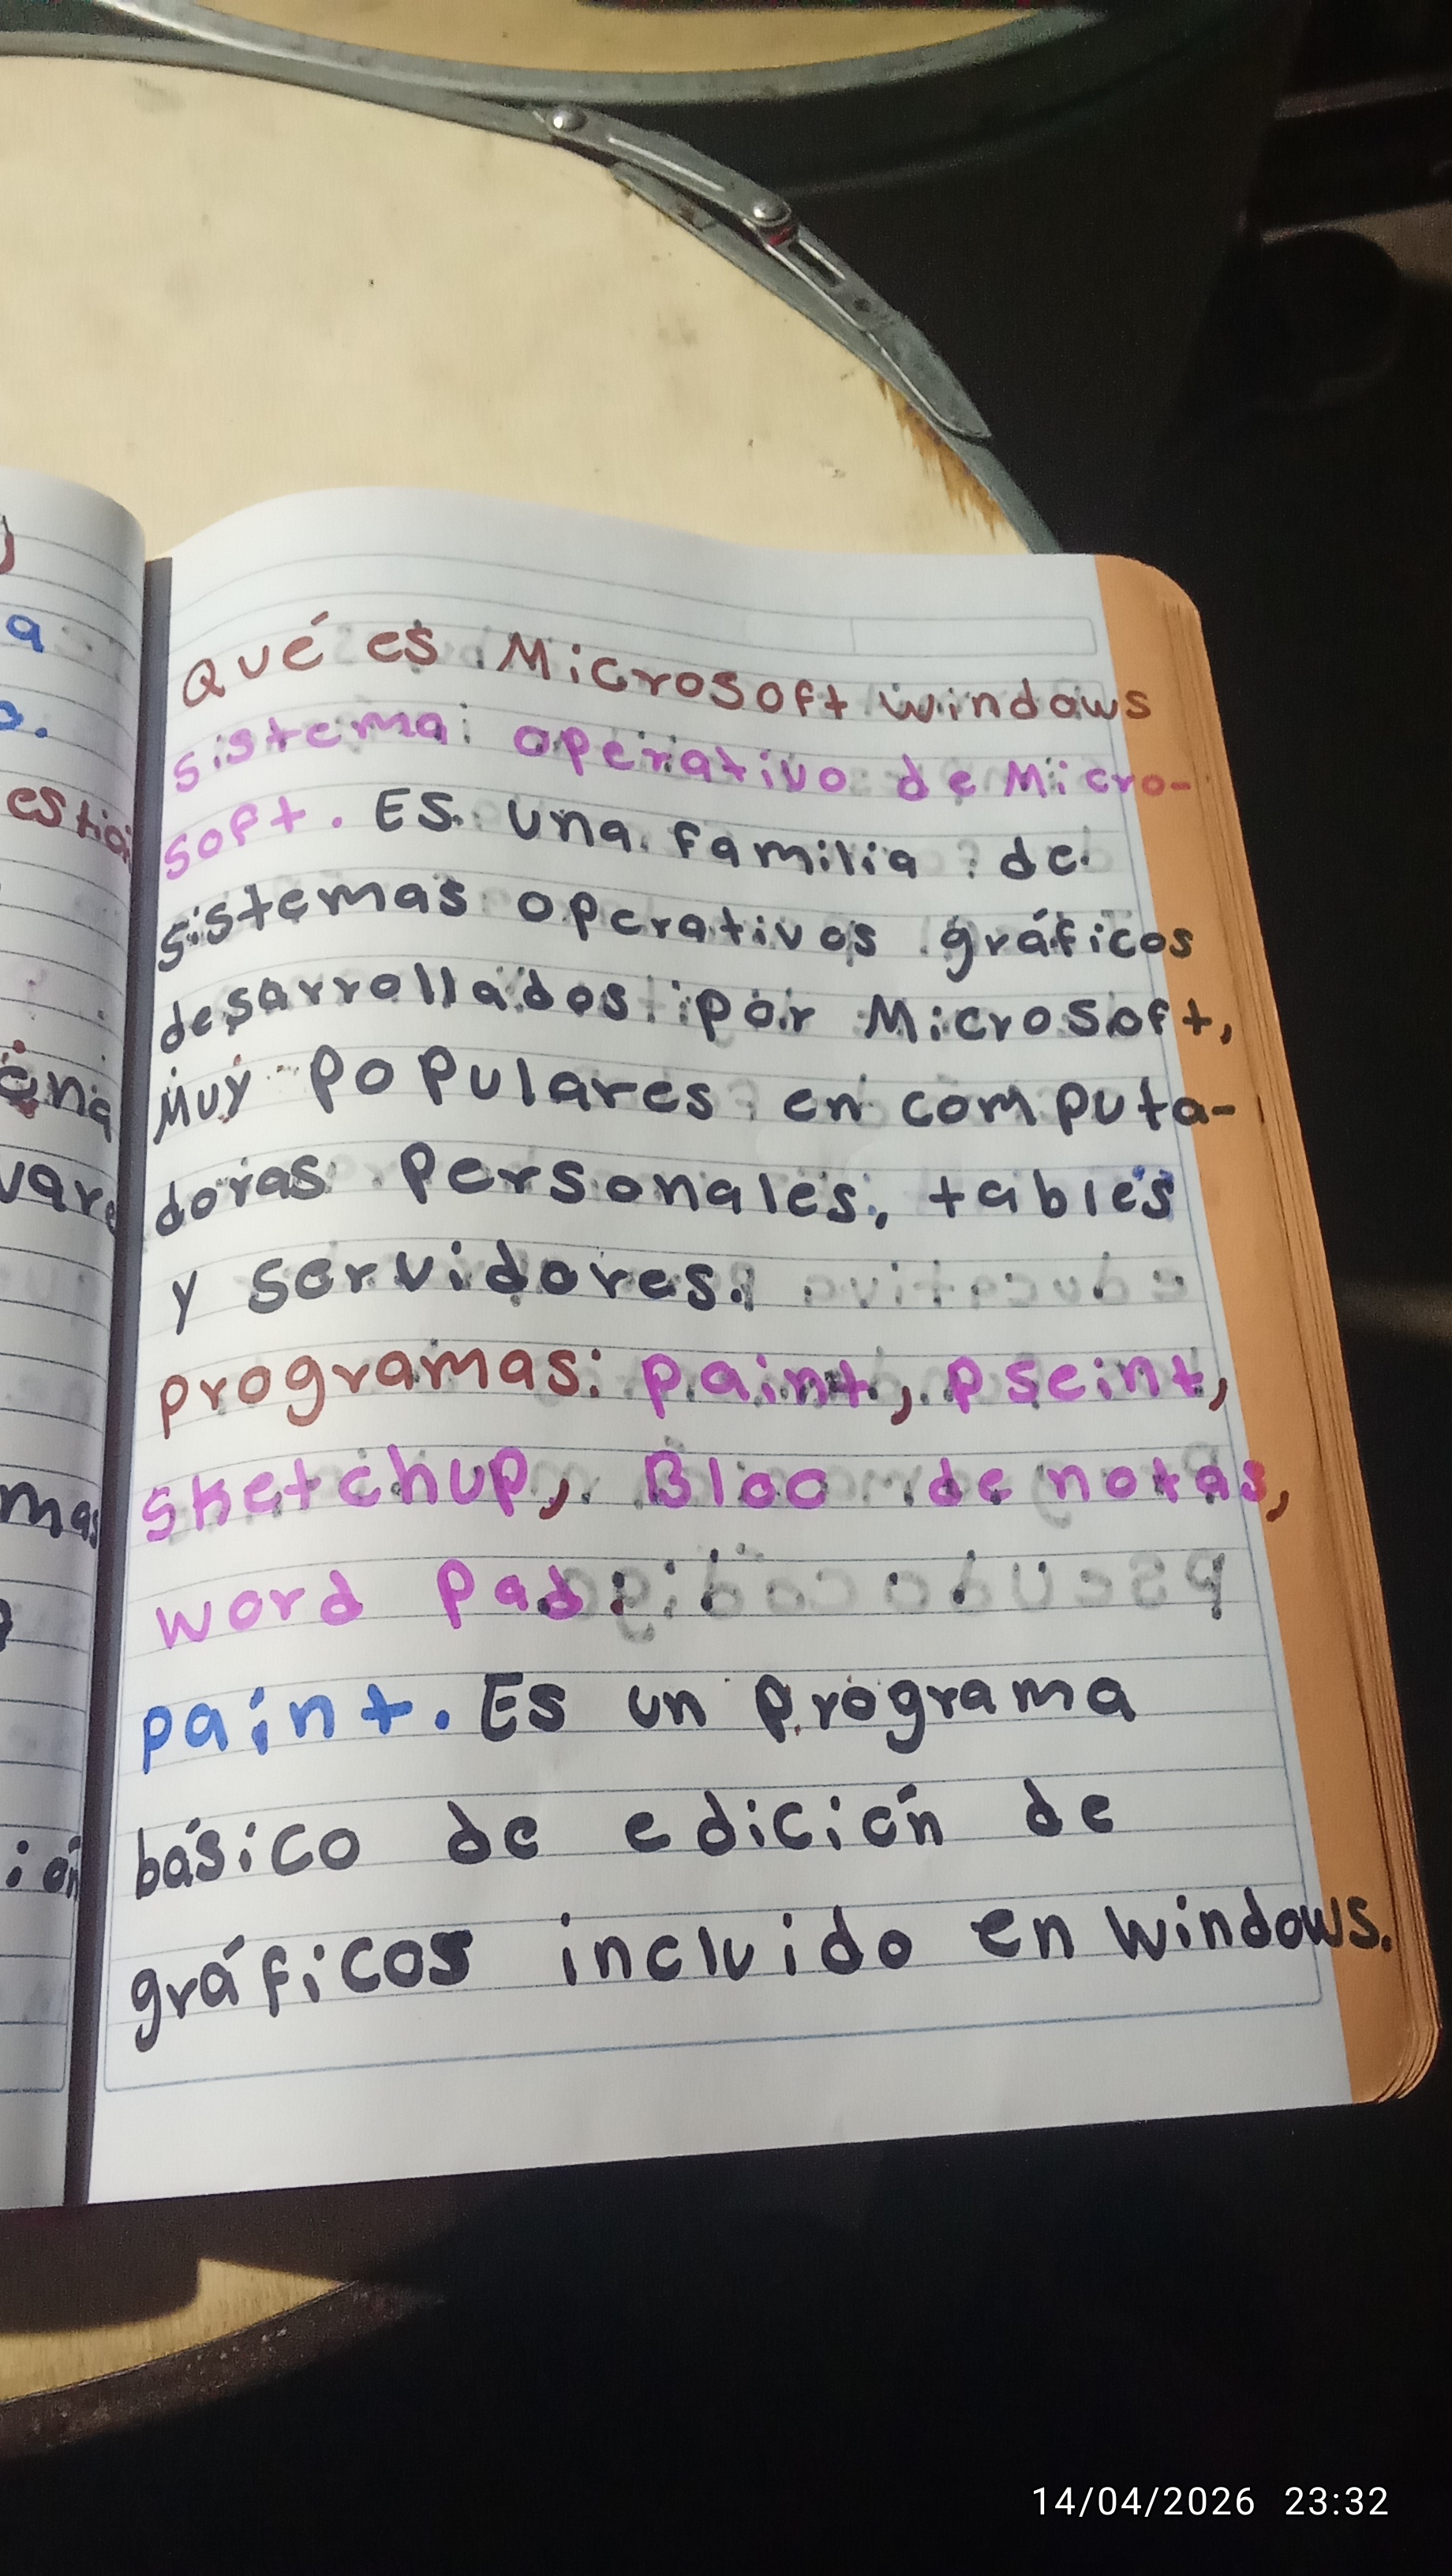 a
o.
estión
ena
ware
mas
ión
Qué es Microsoft windows
sistema operativo de Micro-
soft. Es una familia de
sistemas operativos gráficos
desarrollados por Microsoft,
Muy Populares en computa-
doras Personales, tables
y servidores.
programas: paint, pseint,
sketchup, Bloc de notas,
word Pad.
paint. Es un programa
básico de edición de
gráficos incluido en windows.
14/04/2026 23:32